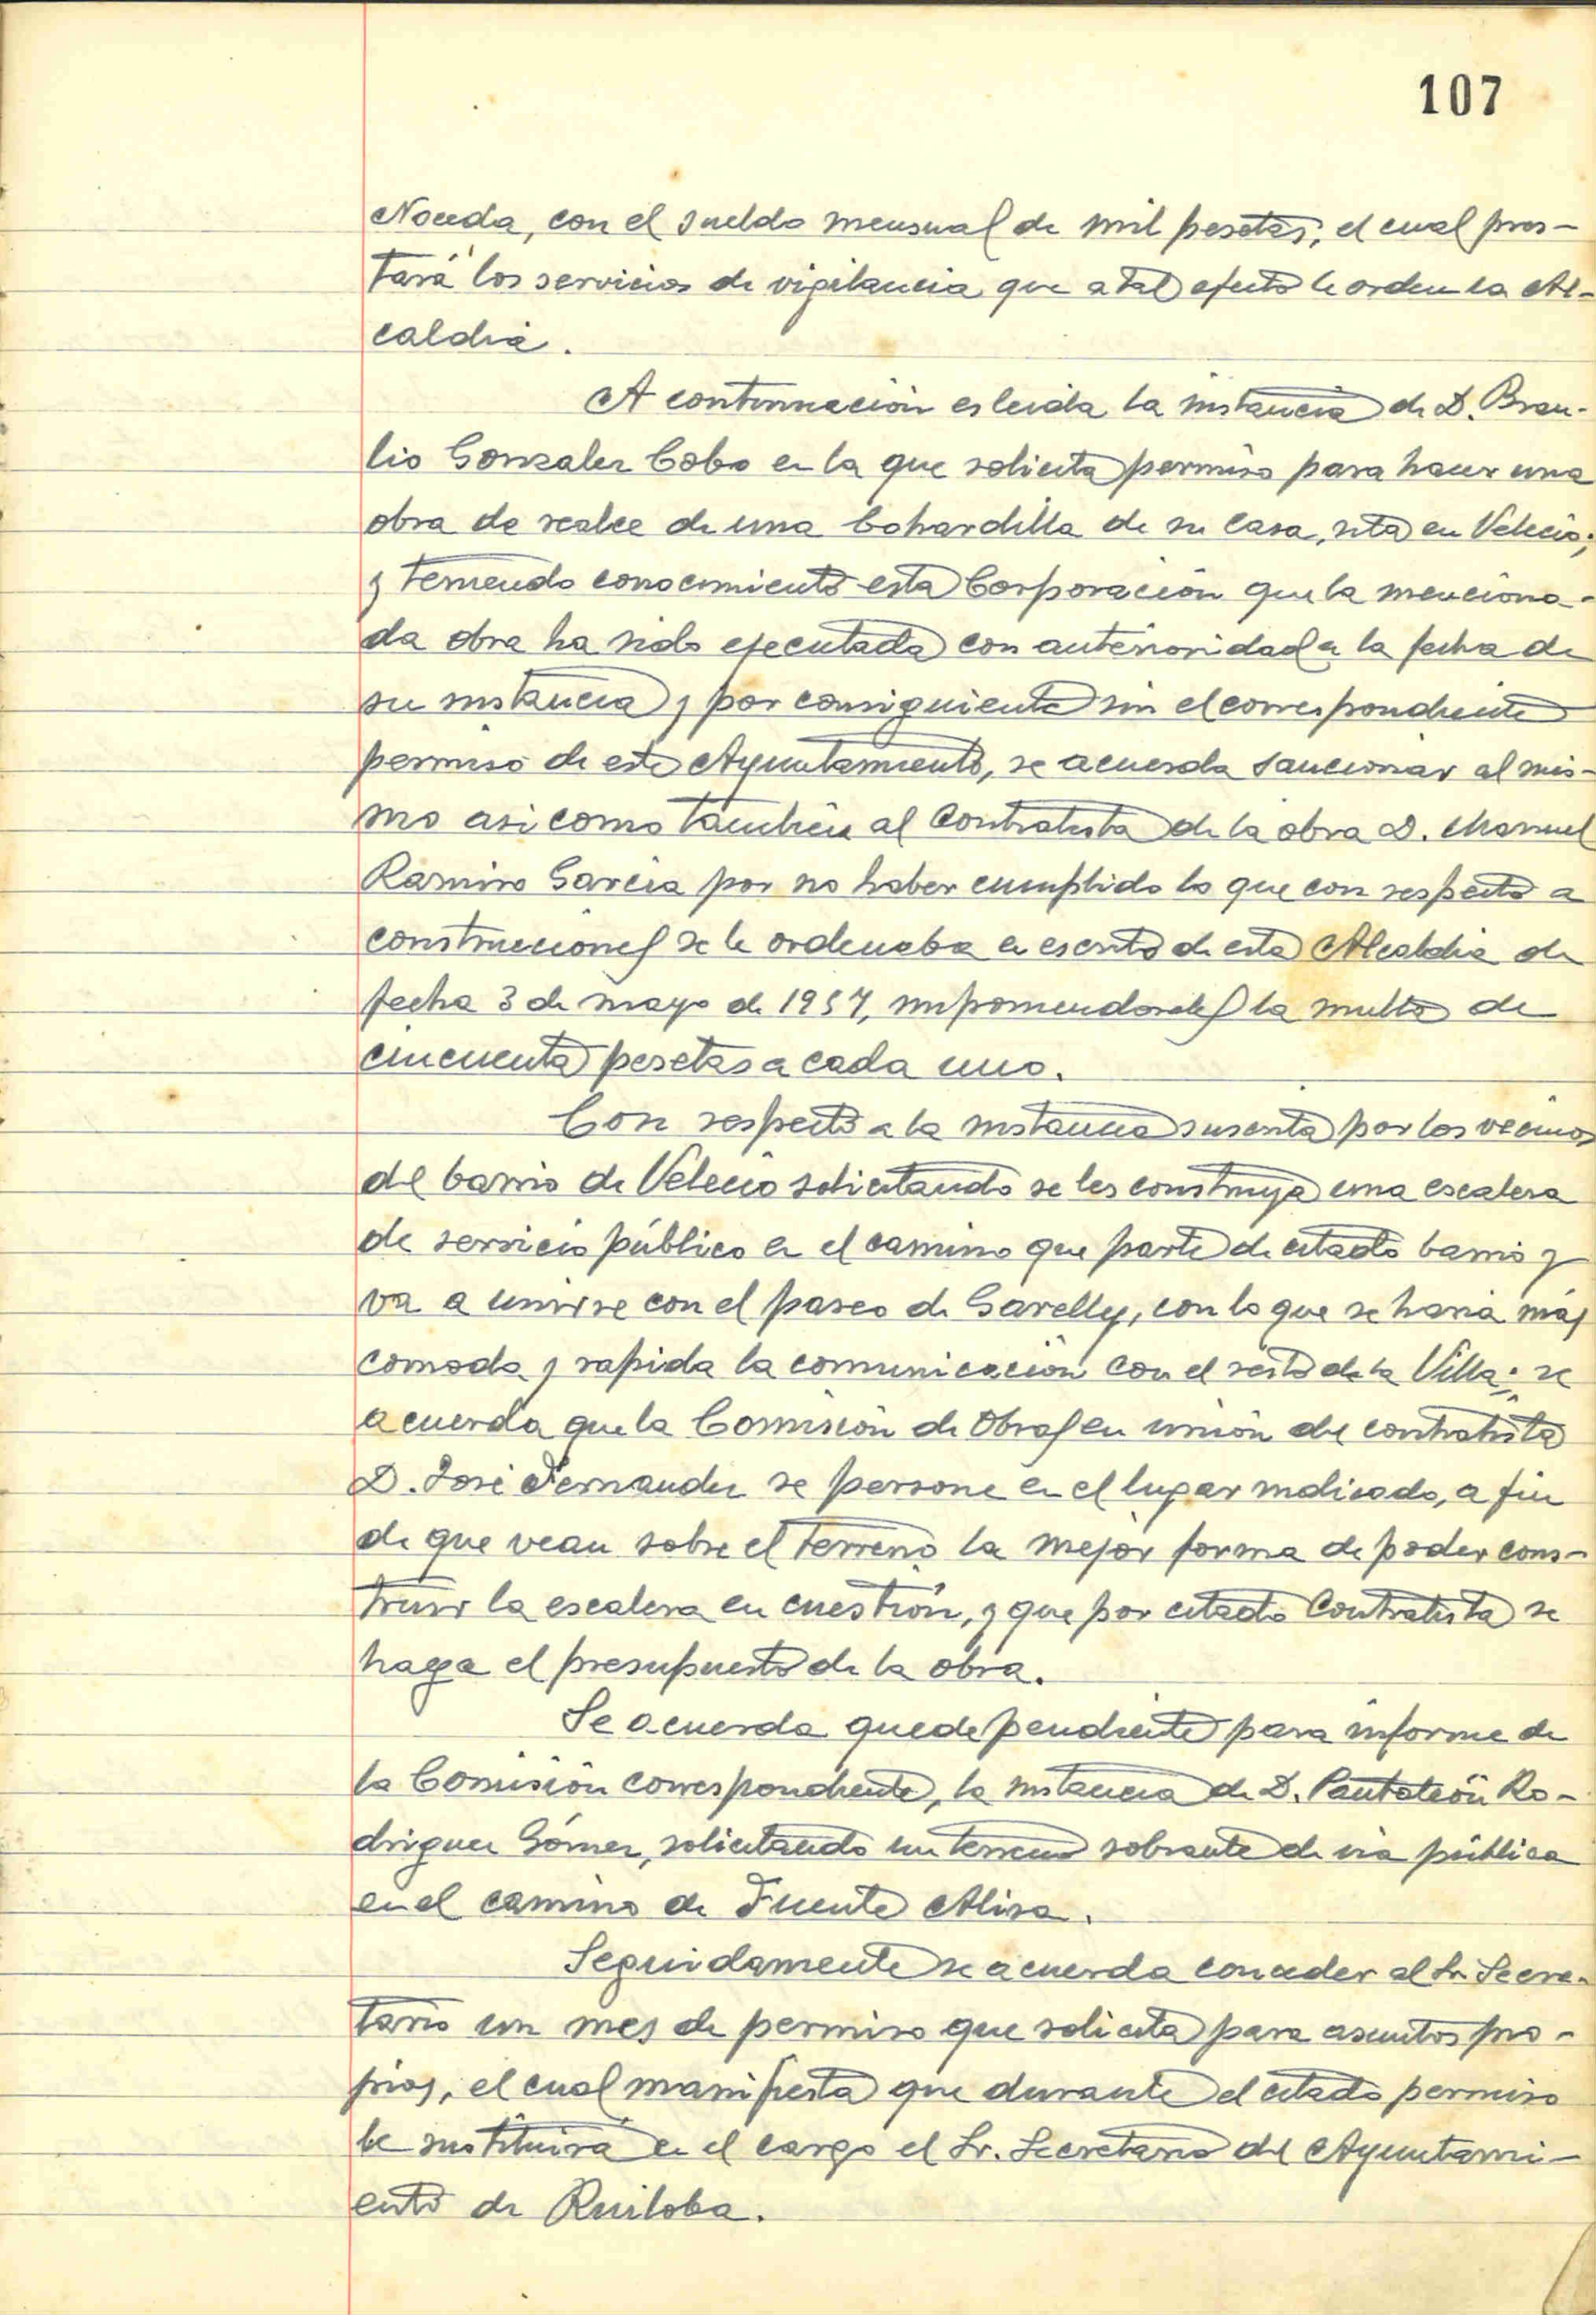 107
Noceda, con el sueldo mensual de mil pesetas, el cual pres-
tará los servicios de vigilancia que a tal efecto le orden la Al-
caldia.
A continuación es leida la instancia de D. Brau-
lio Gonzalez Cobo en la que solicita permiso para hacer una
obra de realce de una bohardilla de su casa, sita en Velecio;
y teniendo conocimiento esta Corporación que la menciona-
da obra ha sido ejecutada con anterioridad a la fecha de
su instancia y por consiguiente sin el correspondiente
permiso de este Ayuntamiento, se acuerda sancionar al mis-
mo asi como tambien al Contratista de la obra D. Manuel
Ramiro Garcia por no haber cumplido lo que con respecto a
construcciones se le ordenaba en escrito de esta Alcaldia de
fecha 3 de mayo de 1957, imponiendoseles la multa de
cincuenta pesetas a cada uno.
Con respecto a la instancia suscrita por los vecinos
del barrio de Velecio solicitando se les construya una escalera
de servicio público en el camino que parte de citado barrio y
va a unirse con el paseo de Garelly, con lo que se haria más
comoda y rapida la comunicación con el resto de la Villa; se
acuerda que la Comisión de Obras en unión del contratista
D. José Fernandez se persone en el lugar indicado, a fin
de que vean sobre el terreno la mejor forma de poder cons-
truir la escalera en cuestión, y que por citado Contratista se
haga el presupuesto de la obra.
Se acuerda quede pendiente para informe de
la Comisión correspondiente, la instancia de D. Pantaleón Ro-
driguez Gómez, solicitando un terreno sobrante de via pública
en el camino de Fuente Alisa.
Seguidamente se acuerda conceder al Sr. Secre-
tario un mes de permiso que solicita para asuntos pro-
pios, el cual manifiesta que durante el citado permiso
le sustituirá en el cargo el Sr. Secretario del Ayuntami-
ento de Ruiloba.